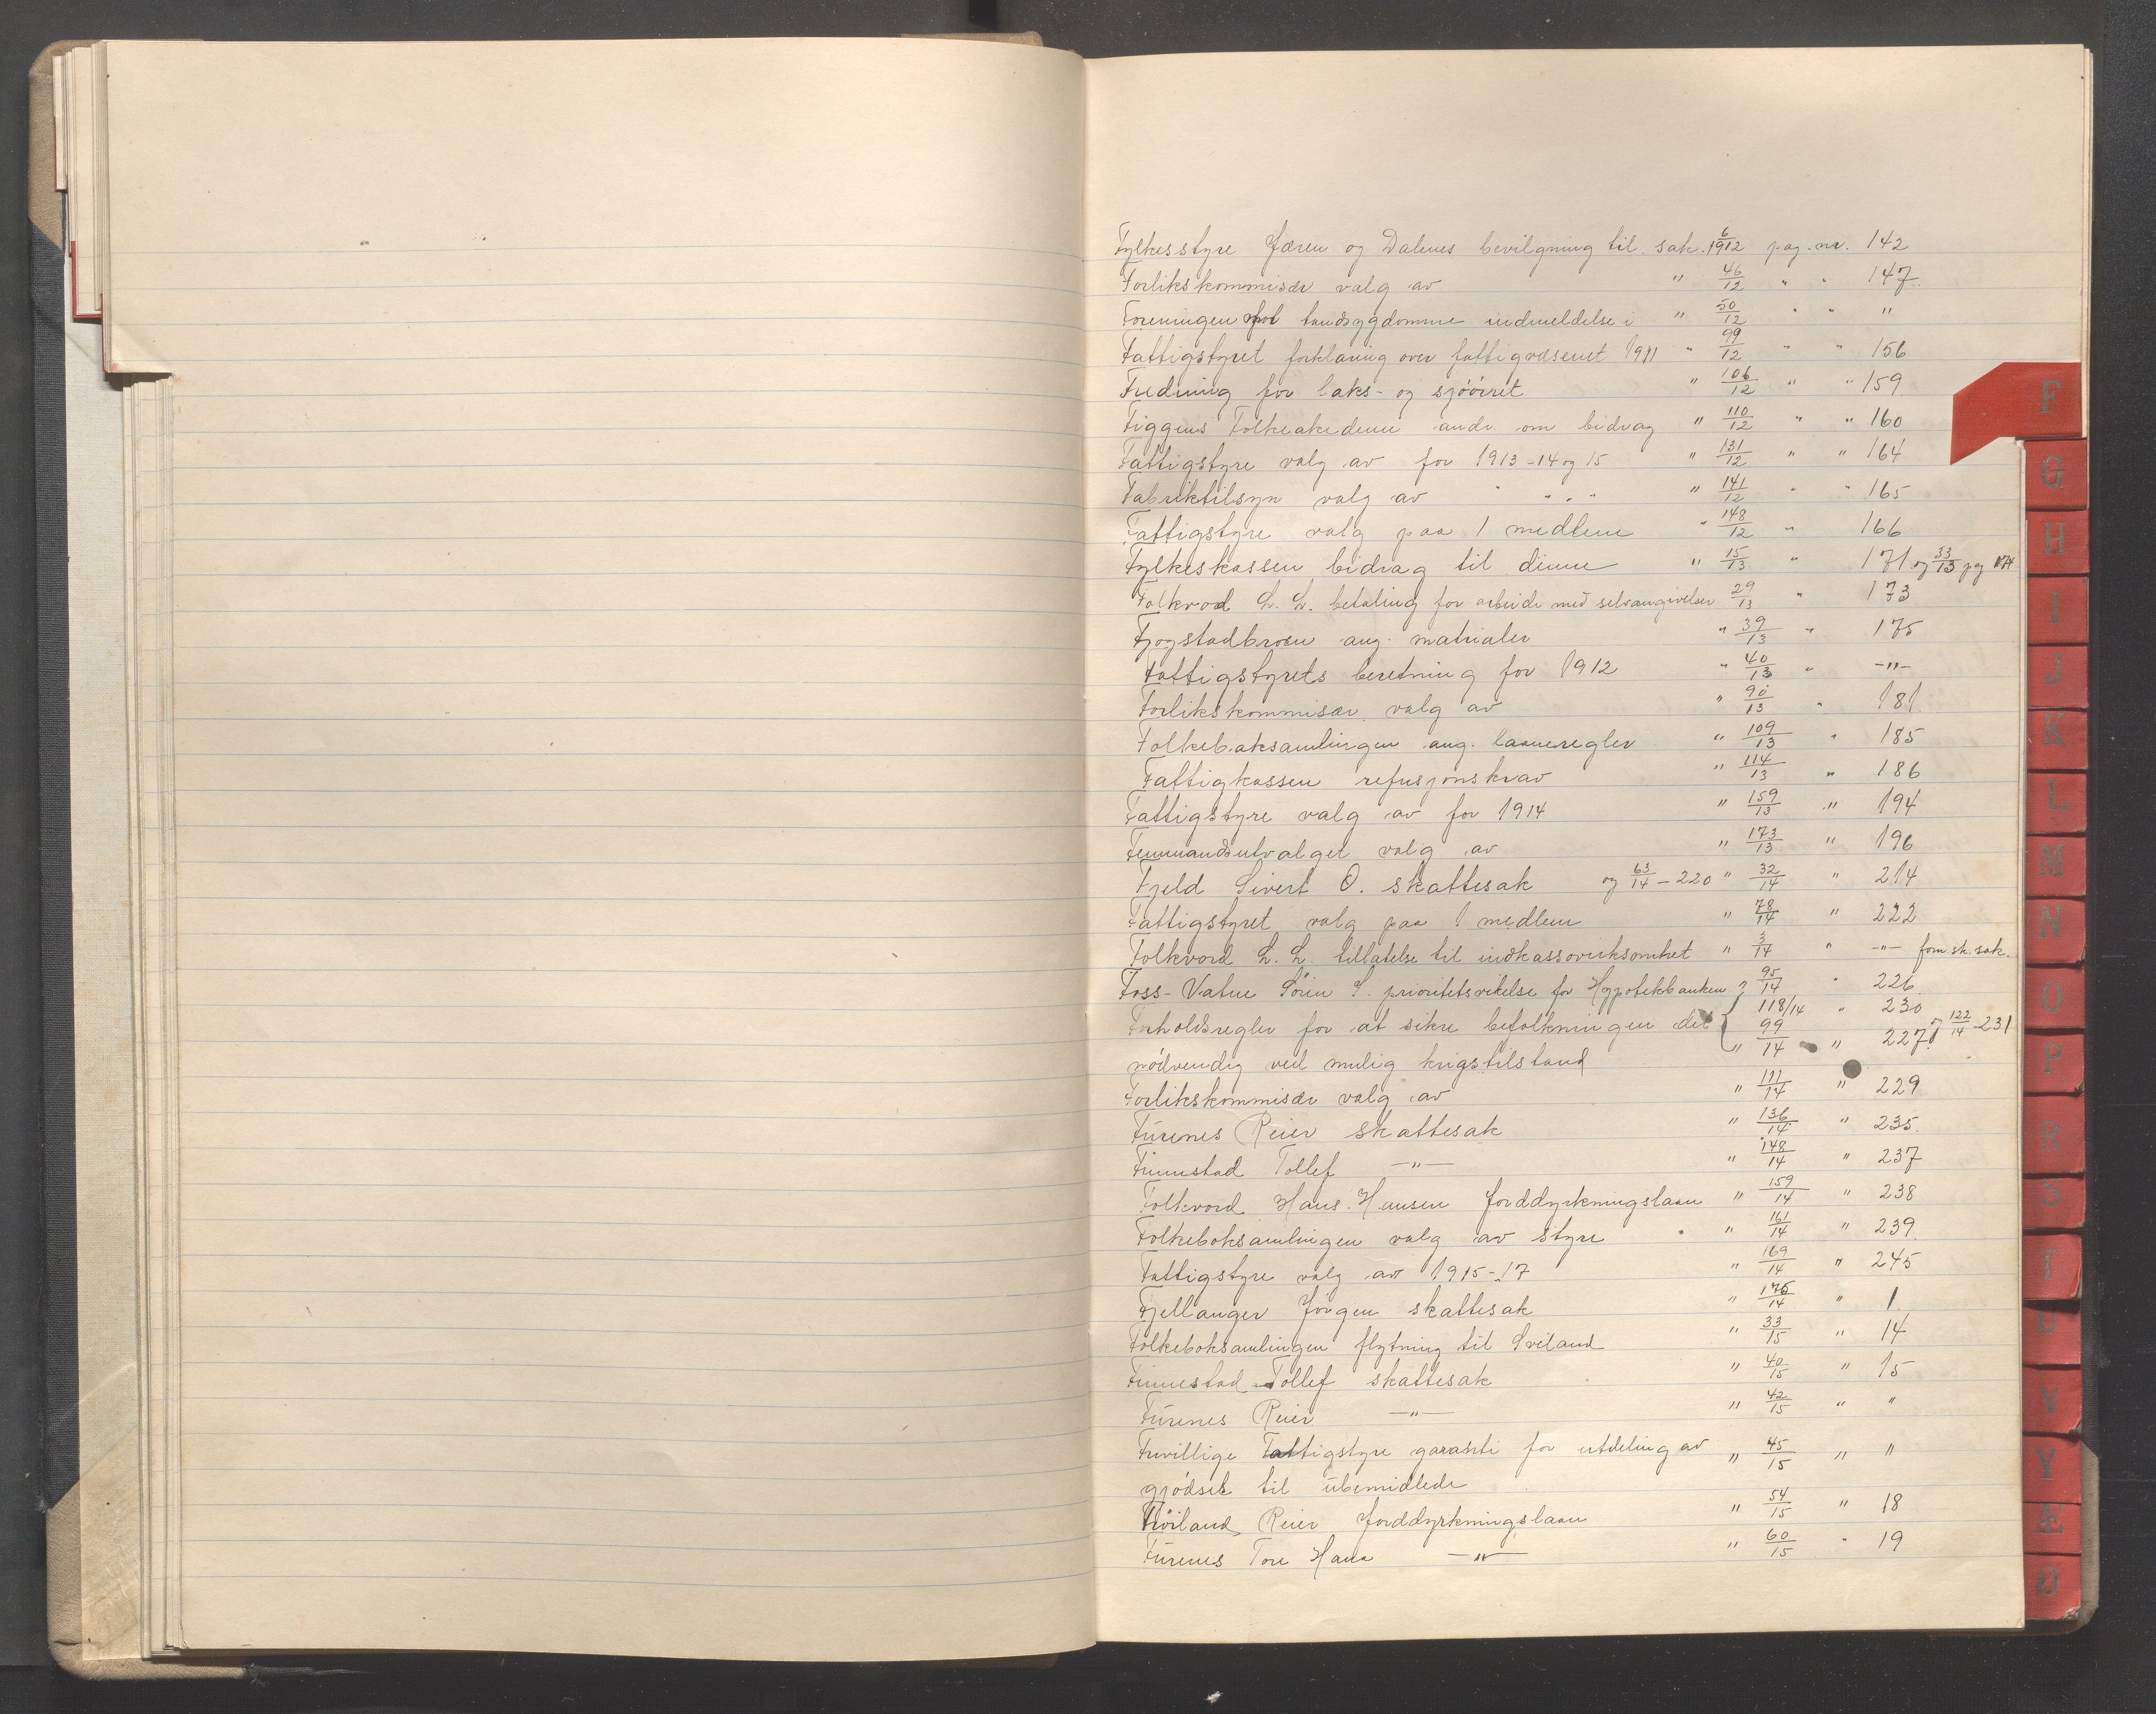 Fylkesstyre Jæren og Dalenes bevilgning til sak. 6/1912 pag. nr. 142
Forlikskommisær valg av " 46/12 " " 147
Foreningen mot landsygdomme indmeldelse i " 50/12 " " "
Fattigstyret forklaring over fattigvæsenet 1911 " 99/12 " " 156
Fredning for laks- og sjöörret " 106/12 " " 159
Figgens Folkeakademi andr. om bidrag " 110/12 " " 160
Fattigstyre valg av for 1913-14 og 15 " 131/12 " " 164
Fabriktilsyn valg av " " " " " 141/12 " " 165
Fattigstyre valg paa 1 medlem " 148/12 " 166
Fylkeskassen bidrag til denne " 15/13 " 171 og 33/13 pag 174
Folkvord L. L. betaling for arbeide med selvangivelser 29/13 " 173
Fjogstadbroen ang. matrialer " 39/13 " 175
Fattigstyrets beretning for 1912 " 40/13 " -"-
Forlikskommisær valg av " 90/13 " 181
Folkeboksamlingen ang. laaneregler " 109/13 " 185
Fattigkassen refusjonskrav " 114/13 " 186
Fattigstyre valg av for 1914 " 159/13 " 194
Femmandsutvalget valg av " 173/13 " 196
Fjeld Sivert O. skattesak og 63/14 - 220 " 32/14 " 214
Fattigstyret valg paa 1 medlem " 78/14 " 222
Folkvord L. L. tillatelse til indkassovirksomhet " 3/14 " -"- form. sk. sak.
Foss-Vatne Sören S. prioritetsvikelse for Hypotekbanken 95/14 " 226
Forholdsregler for at sikre befolkningen det { 118/14 " 230
nödvendig ved mulig krigstilstand " 99/14 " 227 og 122/14 - 231
Forlikskommisær valg av " 111/14 " 229
Furenes Reier skattesak " 136/14 " 235
Finnestad Tollef -"- " 148/14 " 237
Folkvord Hans Hansen Jorddyrkningslaan " 159/14 " 238
Folkeboksamlingen valg av styre " 161/14 " 239
Fattigstyre valg av 1915-17 " 169/14 " 245
Fjellanger Jörgen skattesak " 175/14 " 1
Folkeboksamlingen flytning til Sviland " 33/15 " 14
Finnestad Tollef skattesak " 40/15 " 15
Furenes Reier -"- " 42/15 " "
Frivillige Fattigstyre garanti for utdeling av " 45/15 " "
gjödsel til ubemidlede
Fröiland Reier Jorddyrkningslaan " 54/15 " 18
Furenes Tore Hana -"- " 60/15 " 19
F
G
H
I
J
K
L
M
N
O
P
R
S
T
U
V
Y
Æ
Ø